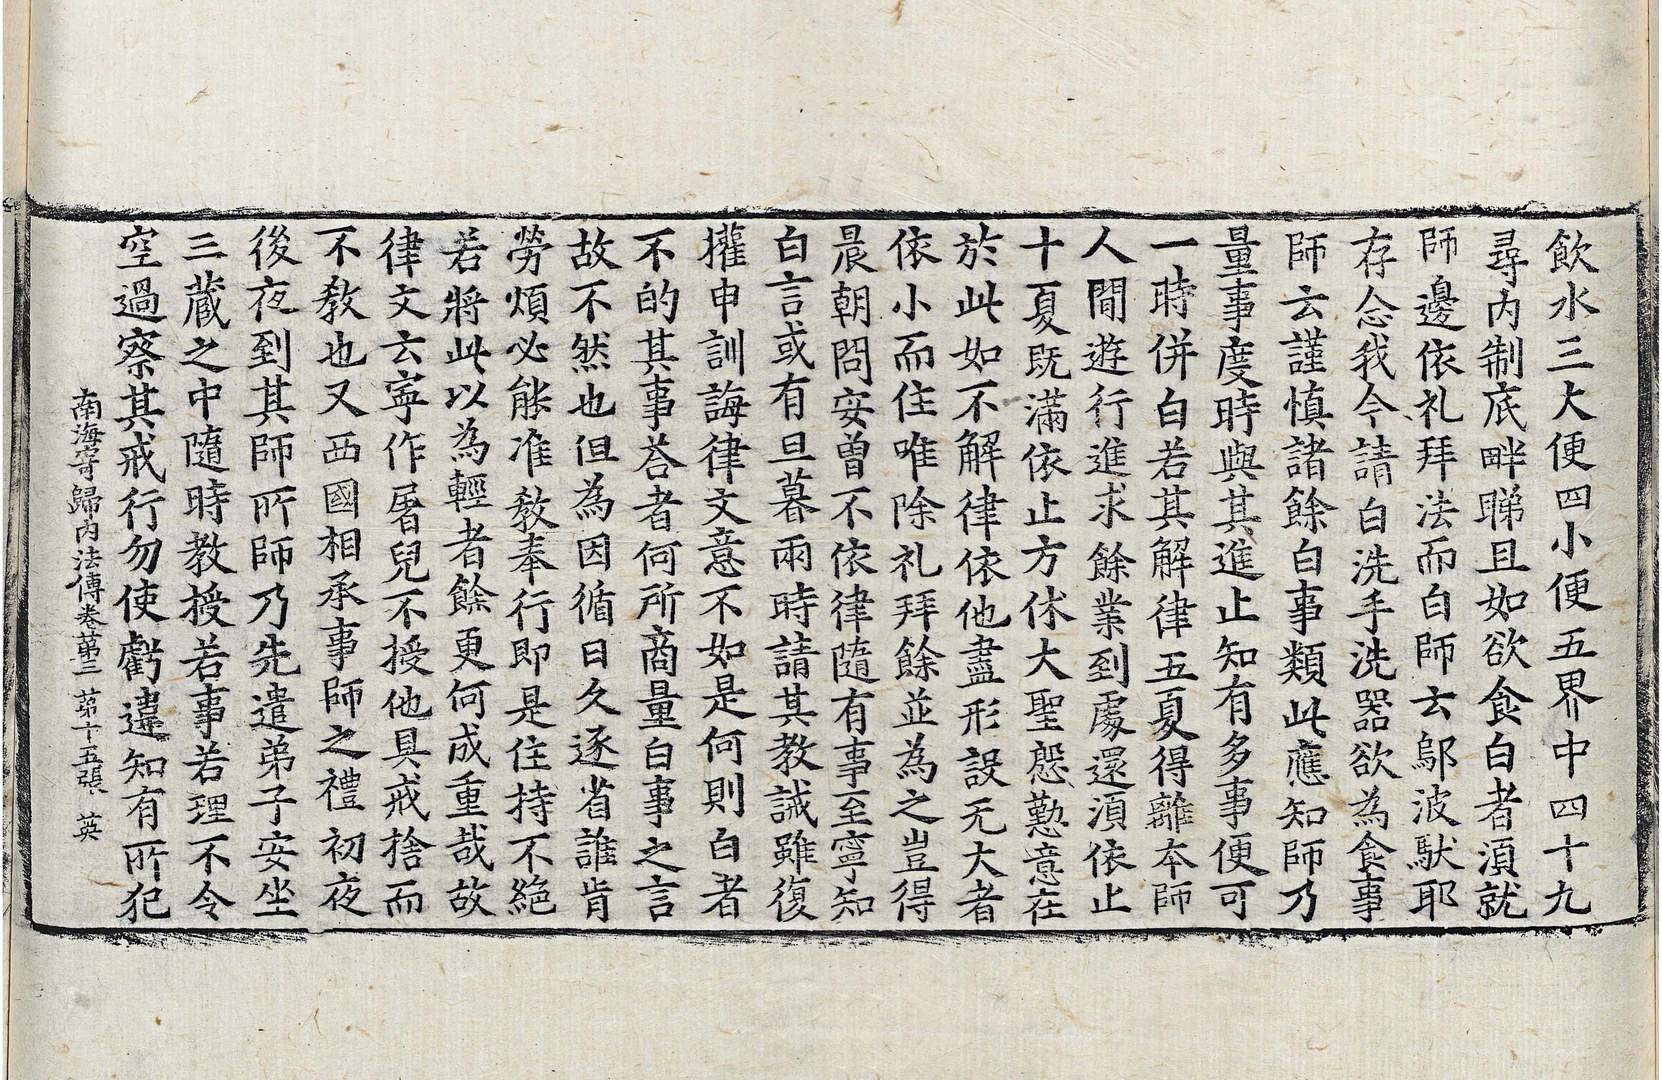 飲水三大便四小便五界中四十九
尋內制底畔睇且如欲食白者湏就
師邊依礼拜法而白師云鄔波馱耶
存念我今請白洗手洗器欲為食事
師云謹慎諸餘白事類此應知師乃
量事度時與其進止知有多事便可
一時併白若其解律五夏得離本師
人間遊行進求餘業到處還湏依止
十夏既滿依止方休大聖慇懃意在
於此如不解律依他盡形設无大者
依小而住唯除礼拜餘並為之豈得
晨朝問安曾不依律隨有事至寧知
白言或有旦暮兩時請其教誡雖復
攉申訓誨律文意不如是何則白者
不的其事荅者何所商量白事之言
故不然也但為因循日久逐省誰肯
勞煩必能准教奉行即是住持不絕
若將此以為輕者餘更何成重哉故
律文云寧作屠兒不授他具戒捨而
不教也又西國相承事師之禮初夜
後夜到其師所師乃先遣弟子安坐
三藏之中隨時教授若事若理不令
空過察其戒行勿使虧違知有所犯
南海寄歸內法傳卷苐三 苐十五張 英